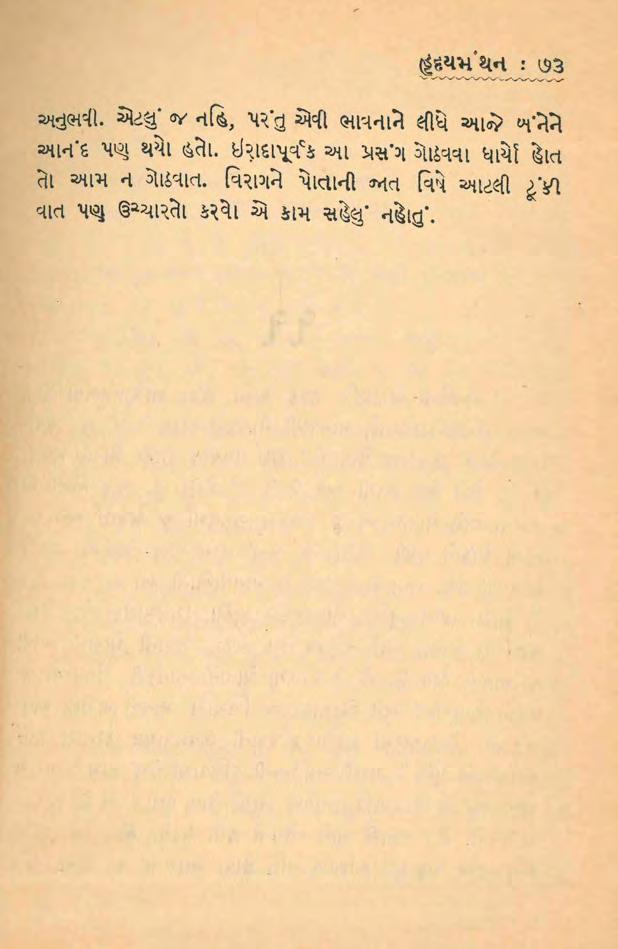 હૃદયમંથન : ૭૩
અનુભવી. એટલું જ નહિ, પરંતુ એવી ભાવનાને લીધે આજે બંનેને
આનંદ પણ થયો હતો. ઇરાદાપૂર્વક આ પ્રસંગ ગોઠવવા ધાર્યો હોત
તો આમ ન ગોઠવાત. વિરાગને પોતાની જાત વિષે આટલી ટૂંકી
વાત પણ ઉચ્ચારતો કરવો એ કામ સહેલું નહોતું.